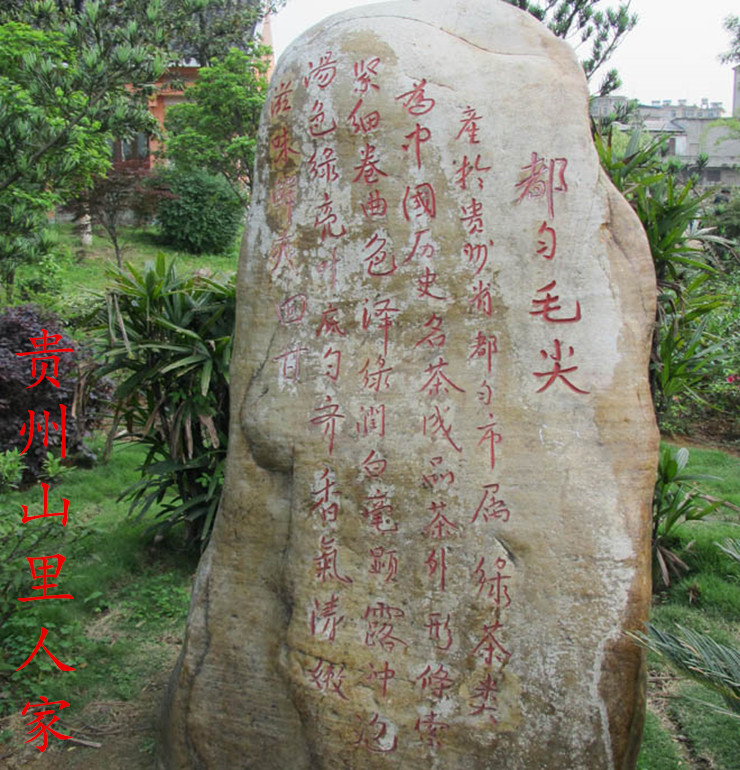 都匀毛尖
產於贵州省都匀市属绿茶类
為中國历史名茶成品茶外形條索
紧细卷曲色泽绿润白毫顯露冲泡
湯色绿亮叶底匀齐香氣清嫩
滋味鲜爽回甘
贵州山里人家